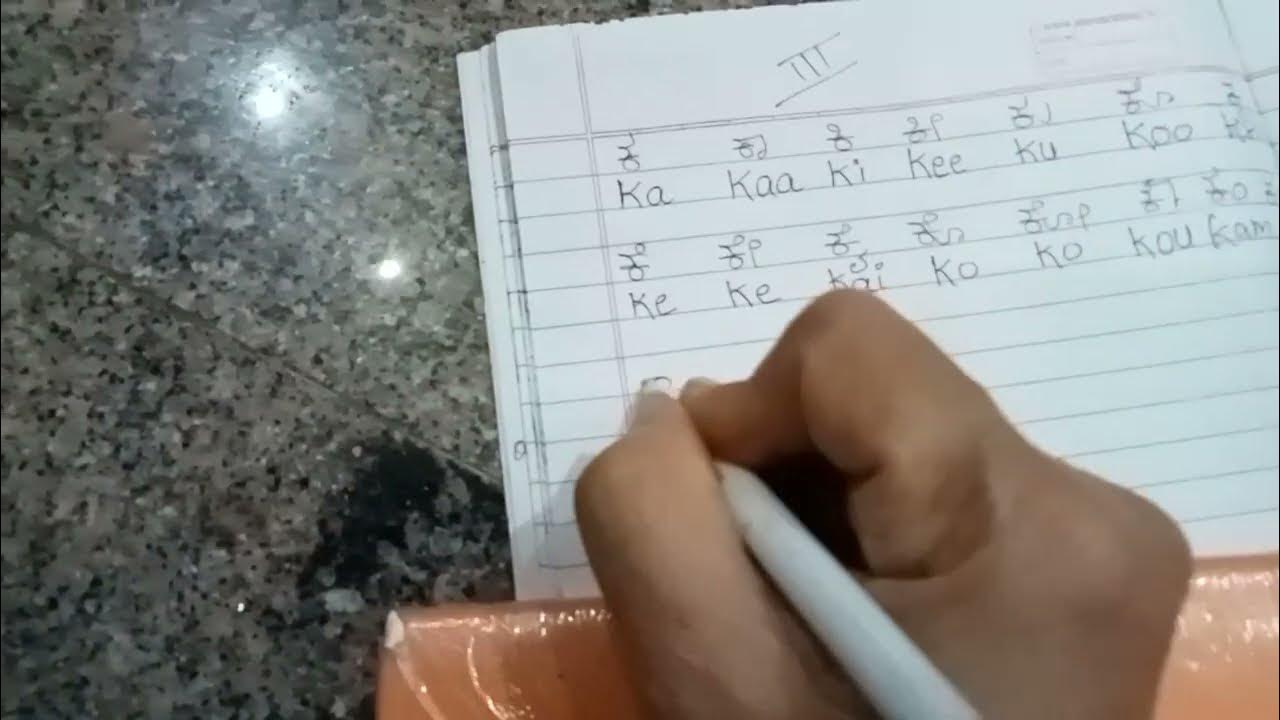 III
ಕ ಕಾ ಕಿ ಕೀ ಕು ಕೂ
Ka Kaa Ki Kee Ku Koo
ಕೆ ಕೇ ಕೈ ಕೊ ಕೋ ಕೌ ಕಂ
Ke Ke Kai Ko Ko Kou Kam